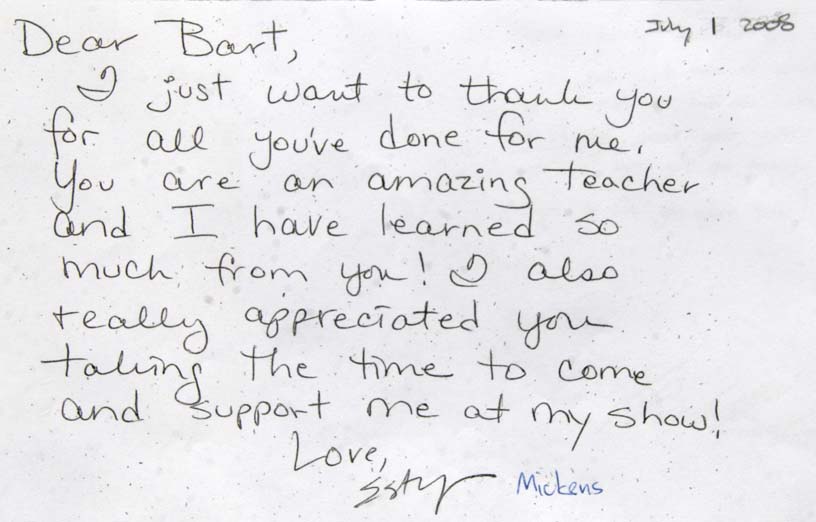 July 1 2008
Dear Bart,
I just want to thank you
for all you've done for me.
You are an amazing teacher
and I have learned so
much from you! I also
really appreciated you
taking the time to come
and support me at my show!
Love,
Mickens